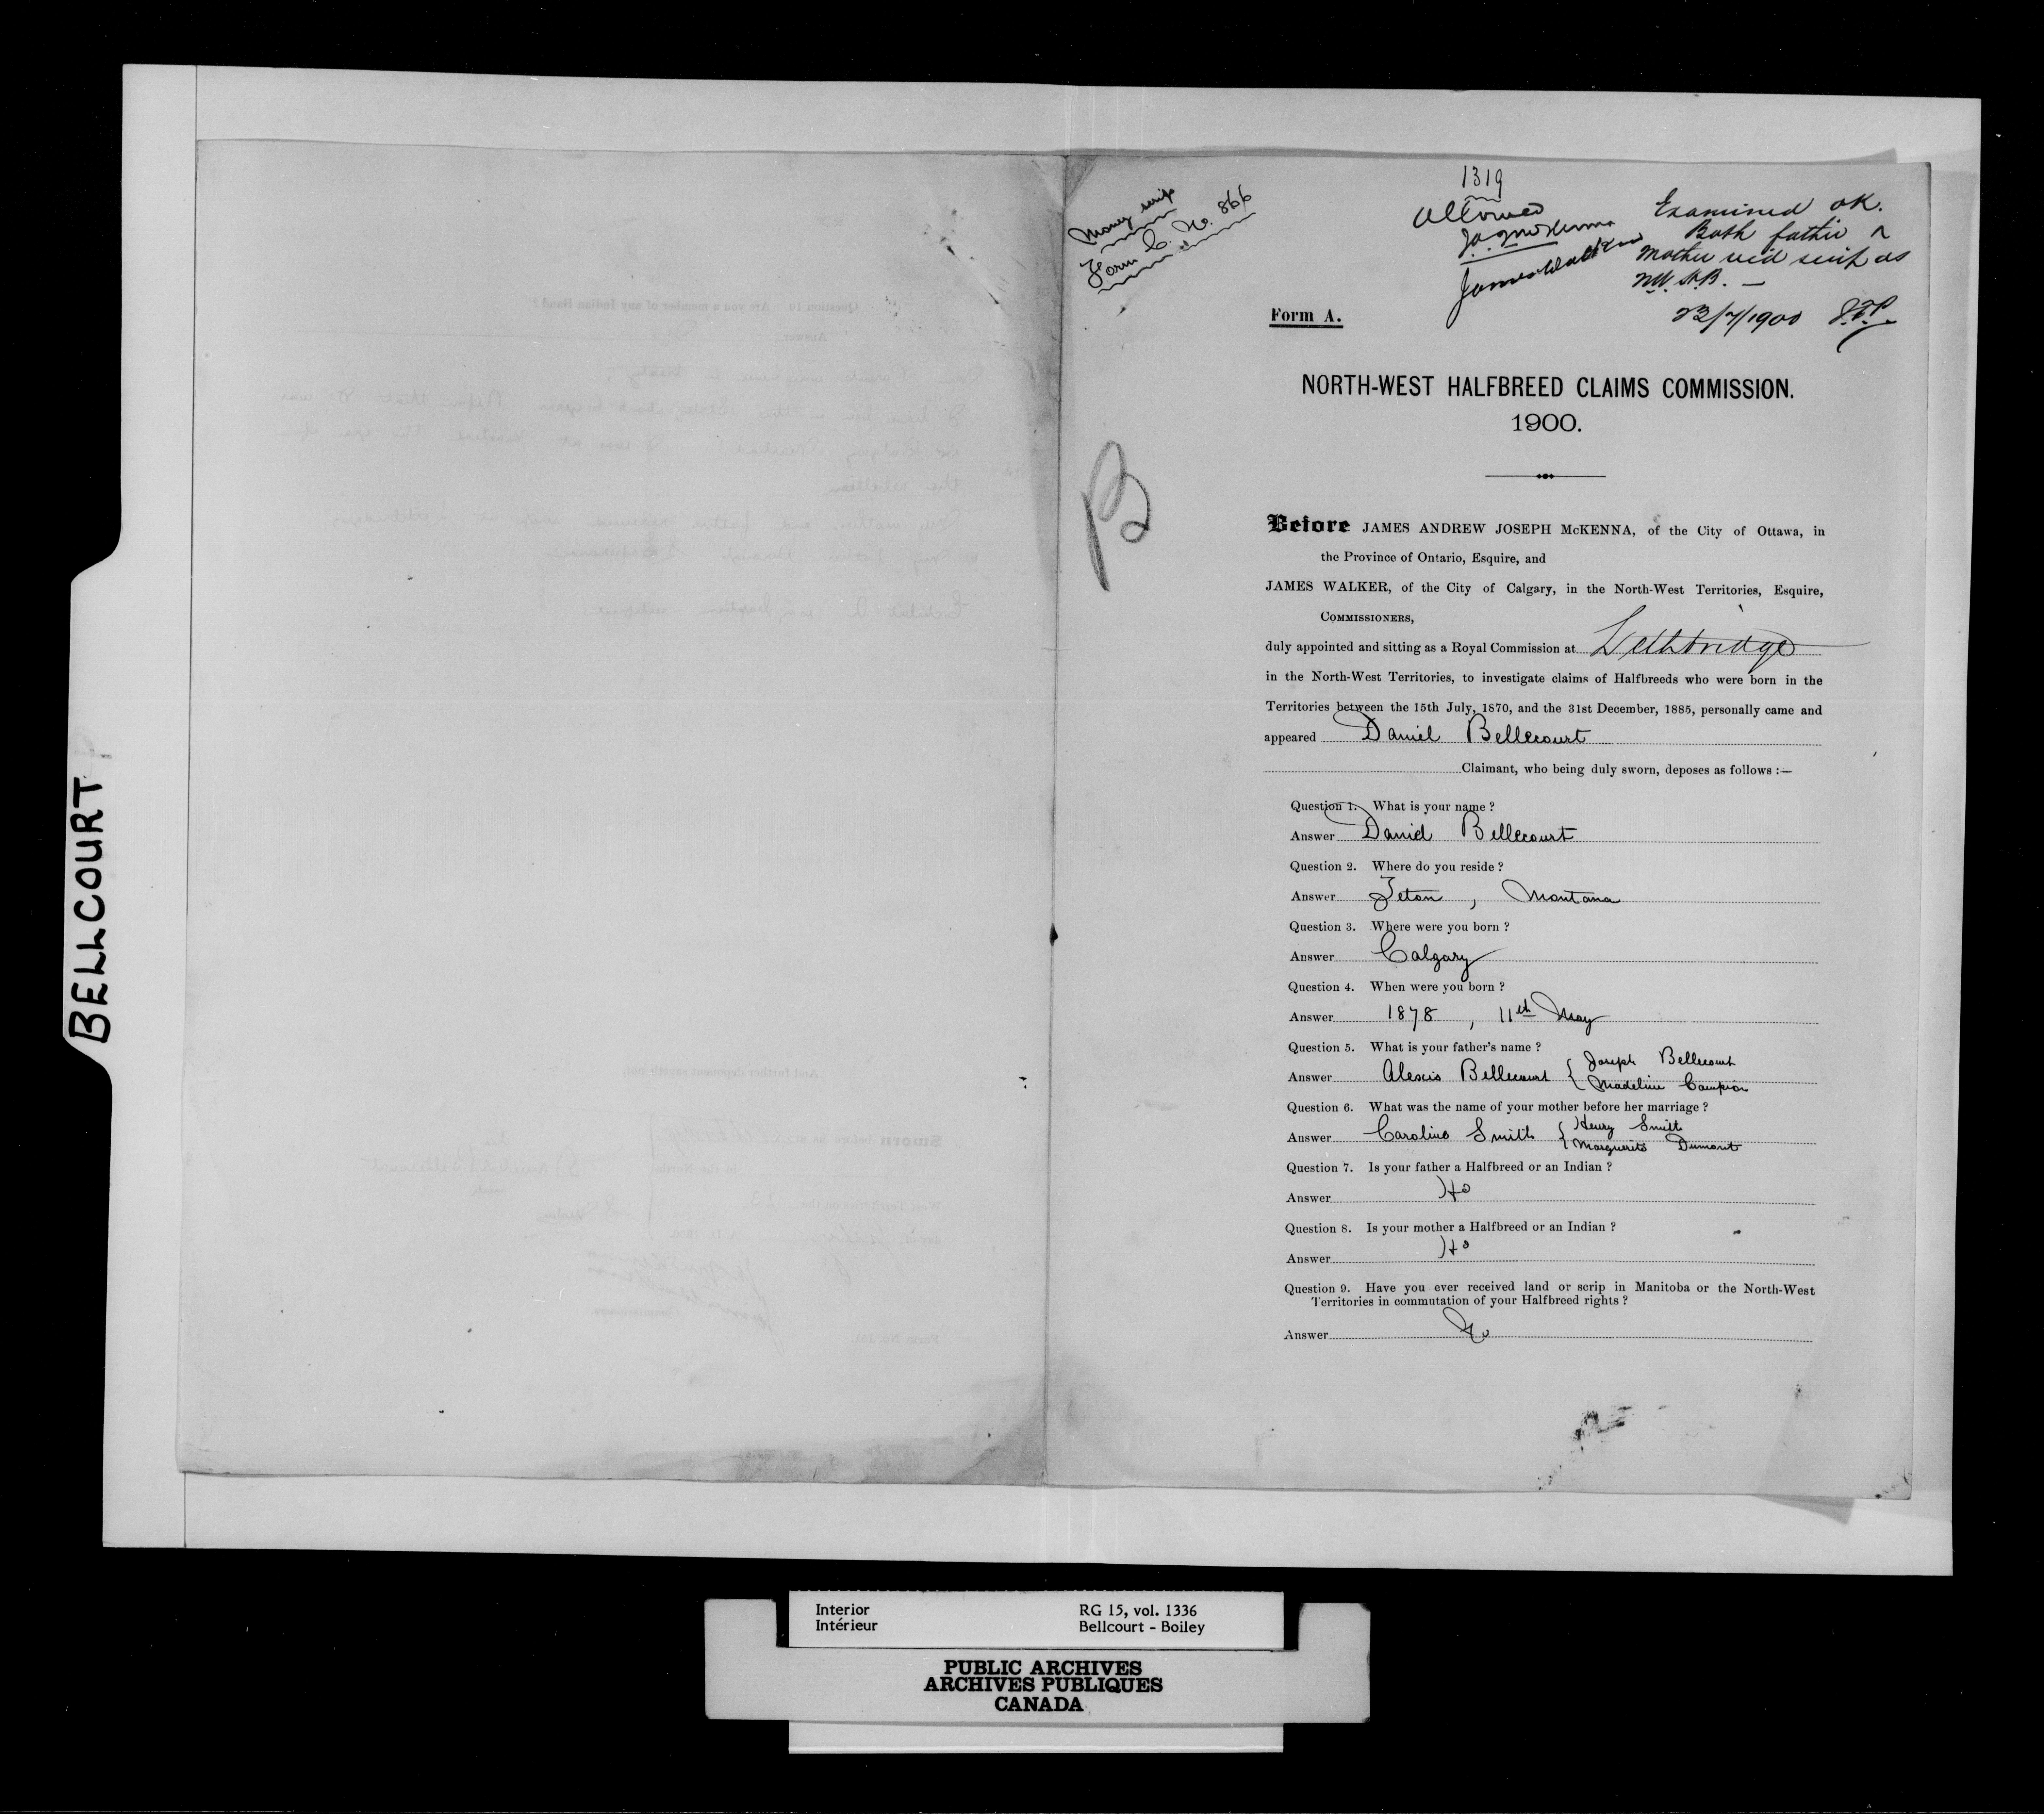 BELLCOURT
Money scrip
Form C. No. 866
1319
Allowed
J.A. McKenna
James Walker
Examined ok.
Both father &
mother rec'd scrip as
N.W. H.B. —
23/7/1900
Form A.
NORTH-WEST HALFBREED CLAIMS COMMISSION.
1900.
B
Before JAMES ANDREW JOSEPH McKENNA, of the City of Ottawa, in
the Province of Ontario, Esquire, and
JAMES WALKER, of the City of Calgary, in the North-West Territories, Esquire,
COMMISSIONERS,
duly appointed and sitting as a Royal Commission at Lethbridge
in the North-West Territories, to investigate claims of Halfbreeds who were born in the
Territories between the 15th July, 1870, and the 31st December, 1885, personally came and
appeared Daniel Bellecourt
Claimant, who being duly sworn, deposes as follows :—
Question 1. What is your name ?
Answer Daniel Bellecourt
Question 2. Where do you reside ?
Answer Teton, Montana
Question 3. Where were you born ?
Answer Calgary
Question 4. When were you born ?
Answer 1878, 11th May
Question 5. What is your father's name ?
Answer Alexis Bellecourt { Joseph Bellecourt
Madeline Campion
Question 6. What was the name of your mother before her marriage ?
Answer Caroline Smith { Henry Smith
Marguerite Dumont
Question 7. Is your father a Halfbreed or an Indian ?
Answer Hb
Question 8. Is your mother a Halfbreed or an Indian ?
Answer Hb
Question 9. Have you ever received land or scrip in Manitoba or the North-West
Territories in commutation of your Halfbreed rights ?
Answer No
Interior
Intérieur
RG 15, vol. 1336
Bellcourt - Boiley
PUBLIC ARCHIVES
ARCHIVES PUBLIQUES
CANADA